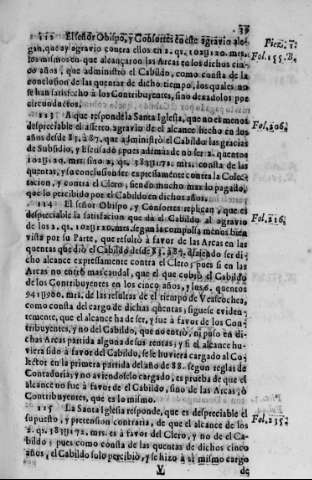 39
112 El señor Obispo, y Consortes en este agravio ale-
gan, que ay agravio contra ellos en 2. qs. 102U120. mrs.
los mismos en que alcançaron las Arcas de los dichos cin-
co años, que administrò el Cabildo, como consta de la
conclusion de quentas de dicho tiempo, los quales no
se han satisfecho à los Contribuyentes, sino dexadolos por
circunductos.
Fol. 155. B.
113 A que responde la Santa Iglesia, que no es menos
despreciable el assero agravio de el alcance hecho en los
años desde 83. à 87. que administrò el Cabildo las gracias
de Subsidio, y Escusado pues además de no ser 2. quentos
102U120. mrs. sino 2. qs. 183U172. mrs. consta de las
quentas, y su conclusion ser expressamente contra la Colec-
tacion, y contra el Clero, siendo mucho mas lo pagado,
que lo percibido por el Cabildo en dichos años.
Fol. 206.
114 El señor Obispo, y Consortes replican, que es
despreciable la satisfacion que dà el Cabildo al agravio
de los 2. qs. 102U120. mrs. segun la compulsa menos bien
vista por su Parte, que resultò à favor de las Arcas en las
quentas que diò el Cabildo desde 83. à 87. diziendo ser di-
cho alcance expressamente contra el Clero; pues si en las
Arcas no entrò mas caudal, que el que cobrò el Cabildo
de los Contribuyentes en los cinco años, y los 6. quentos
941U900. mrs. de las resultas de el tiempo de Veascochea,
como consta del cargo de dichas quentas, siguese eviden-
temente, que el alcance ha de ser, y fue à favor de los Con-
tribuyentes, y no del Cabildo, que no entrò, ni puso en di-
chas Arcas partida alguna de sus rentas; y si el alcance hu-
viera sido à favor del Cabildo, se le huvierà cargado al Co-
lector en la primera partida del año de 88. segun reglas de
Contaduria, y no aviendoselo cargado, es prueba de que el
alcance no fue à favor de el Cabildo, sino de las Arcas, ò
Contribuyentes, que es lo mismo.
Fol. 216.
115 La Santa Iglesia responde, que es despreciable el
supuesto, y pretension contraria, de que el alcance de los
2. qs. 183U172. mrs. es à favor del Clero, y no de el Ca-
bildo; pues como consta de las quentas de dichos cinco
años, el Cabildo solo percibiò, y se hizo à si mismo cargo
Fol. 235.
V de